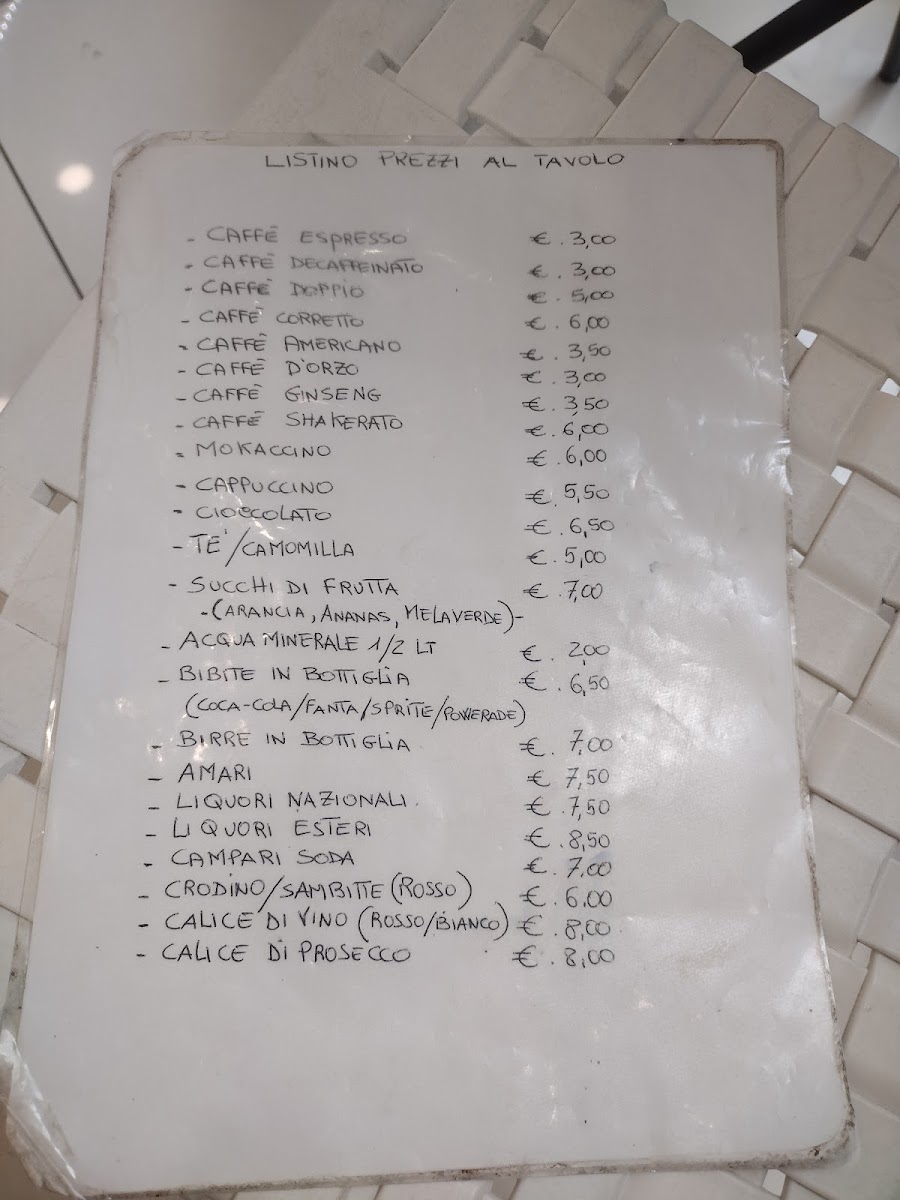 LISTINO PREZZI AL TAVOLO
- CAFFÈ ESPRESSO €. 3,00
- CAFFÈ DECAFFEINATO €. 3,00
- CAFFÈ DOPPIO €. 5,00
- CAFFÈ CORRETTO €. 6,00
- CAFFÈ AMERICANO €. 3,50
- CAFFÈ D'ORZO €. 3,00
- CAFFÈ GINSENG €. 3,50
- CAFFÈ SHAKERATO €. 6,00
- MOKACCINO €. 6,00
- CAPPUCCINO €. 5,50
- CIOCCOLATO €. 6,50
- TE'/CAMOMILLA €. 5,00
- SUCCHI DI FRUTTA €. 7,00
-(ARANCIA, ANANAS, MELAVERDE)-
- ACQUA MINERALE 1/2 LT €. 2,00
- BIBITE IN BOTTIGLIA €. 6,50
(COCA-COLA/FANTA/SPRITE/POWERADE)
- BIRRE IN BOTTIGLIA €. 7,00
- AMARI € 7,50
- LIQUORI NAZIONALI. €. 7,50
- LIQUORI ESTERI €. 8,50
- CAMPARI SODA €. 7,00
- CRODINO/SAMBITTE (ROSSO) €. 6,00
- CALICE DI VINO (ROSSO/BIANCO) €. 8,00
- CALICE DI PROSECCO €. 8,00